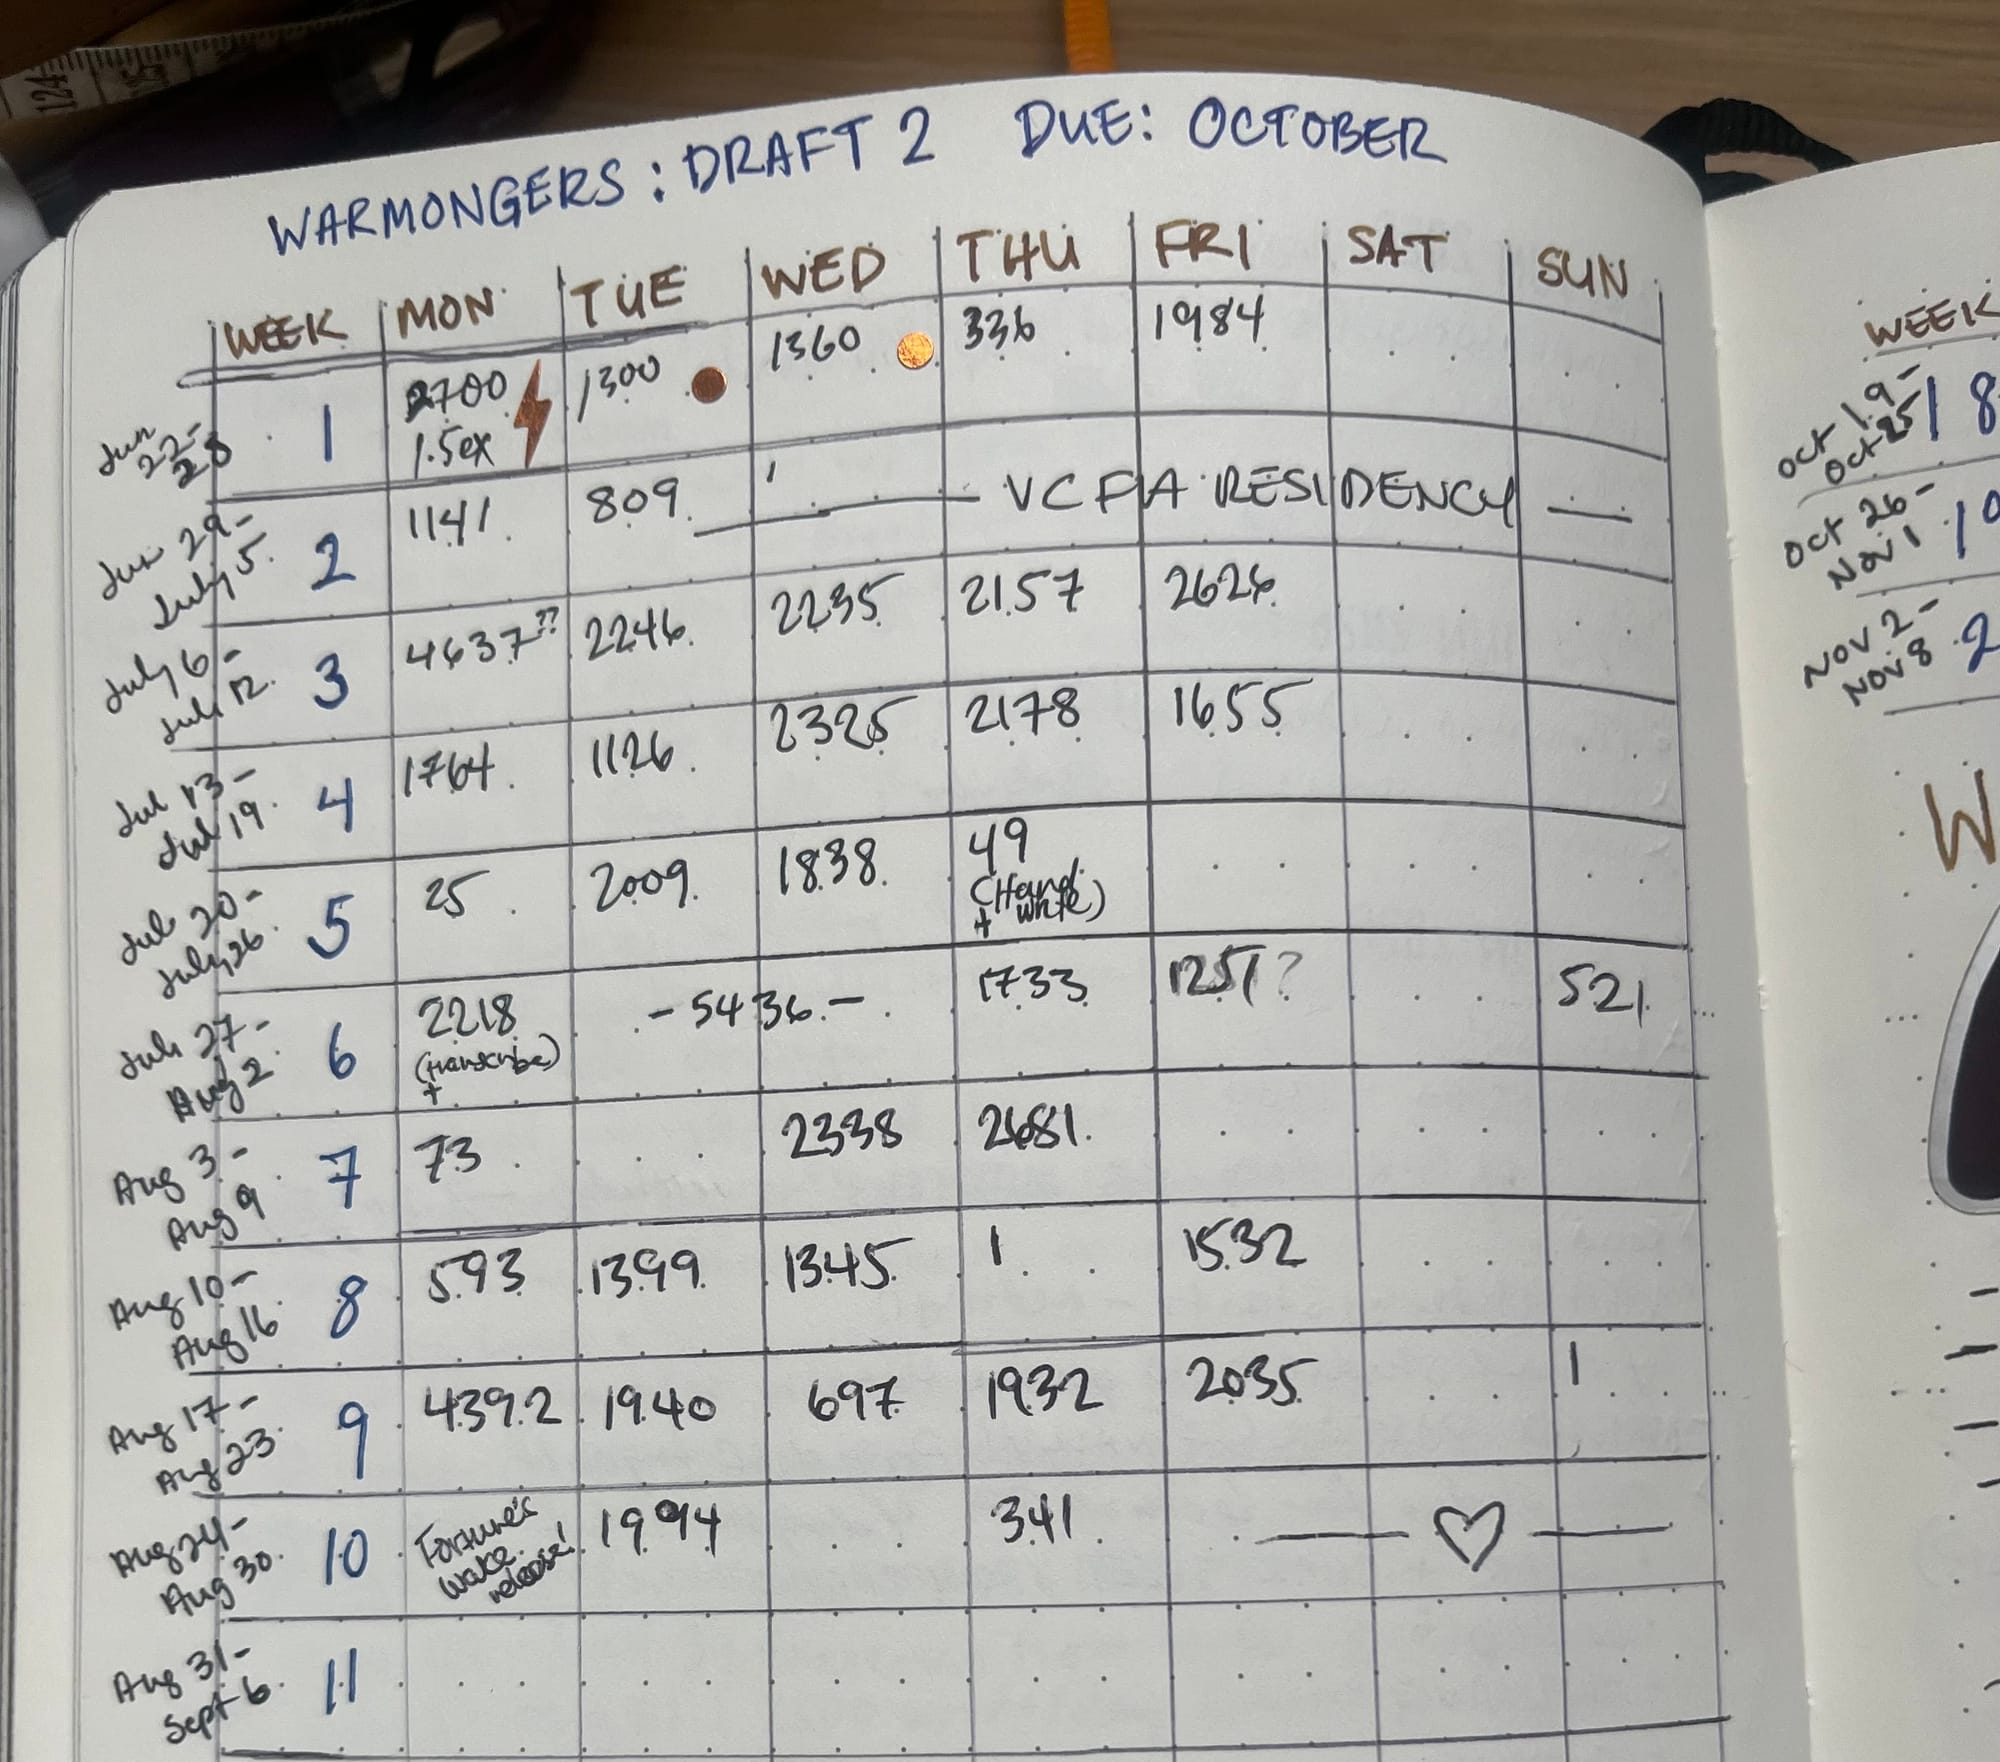 124 125
WARMONGERS: DRAFT 2 DUE: OCTOBER
WEEK MON TUE WED THU FRI SAT SUN
Jun 22-28 1 2700 1.5ex 1300 1360 336 1984
Jun 29-July 5 2 1141 809 — VCFA RESIDENCY —
July 6-Jul 12 3 4637?? 2246 2235 2157 2626
Jul 13-Jul 19 4 1764 1126 2325 2178 1655
Jul 20-July 26 5 25 2009 1838 49 (Hand write) +
Jul 27-Aug 2 6 2218 (transcribe) + -5436- 1733 1251? 521
Aug 3-Aug 9 7 73 2338 2681
Aug 10-Aug 16 8 593 1399 1345 1 1532
Aug 17-Aug 23 9 4392 1940 697 1932 2035 1
Aug 24-Aug 30 10 Fortune's wake release! 1994 341 — ♡ —
Aug 31-Sept 6 11
WEEK
Oct 19-Oct 25 18
Oct 26-Nov 1 19
Nov 2-Nov 8 2
W